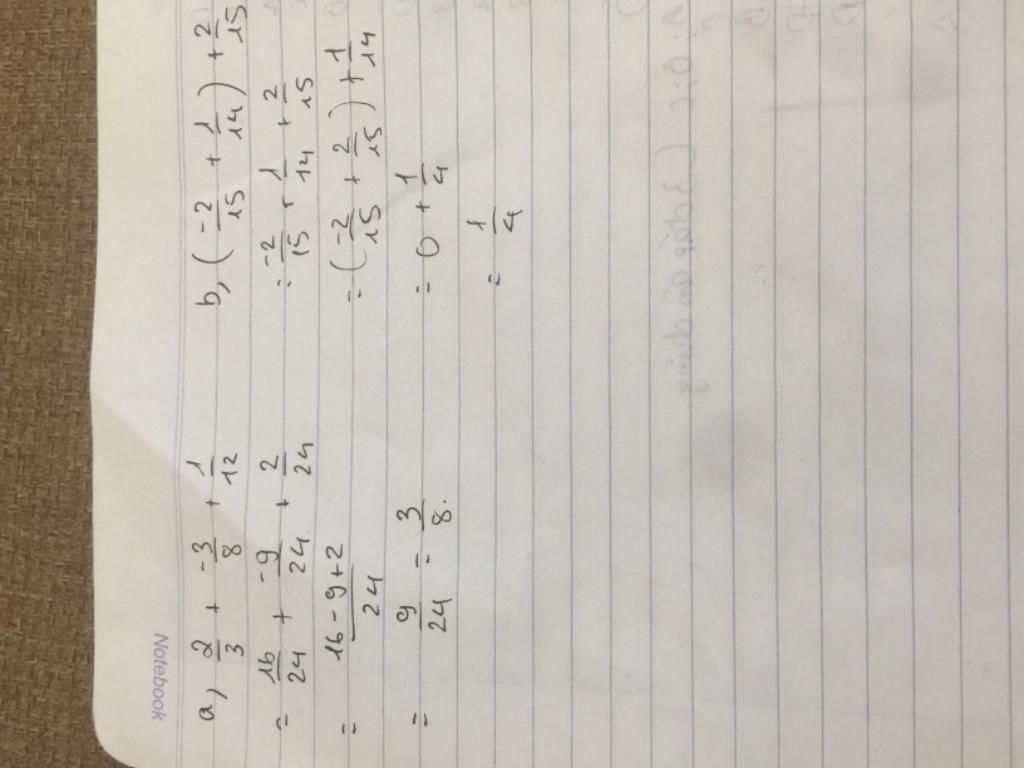 Notebook
a, 2/3 + -3/8 + 1/12
= 16/24 + -9/24 + 2/24
= 16-9+2/24
= 9/24 = 3/8.
b, (-2/15 + 1/14) + 2/15
= -2/15 + 1/14 + 2/15
= (-2/15 + 2/15) + 1/14
= 0 + 1/4
= 1/4